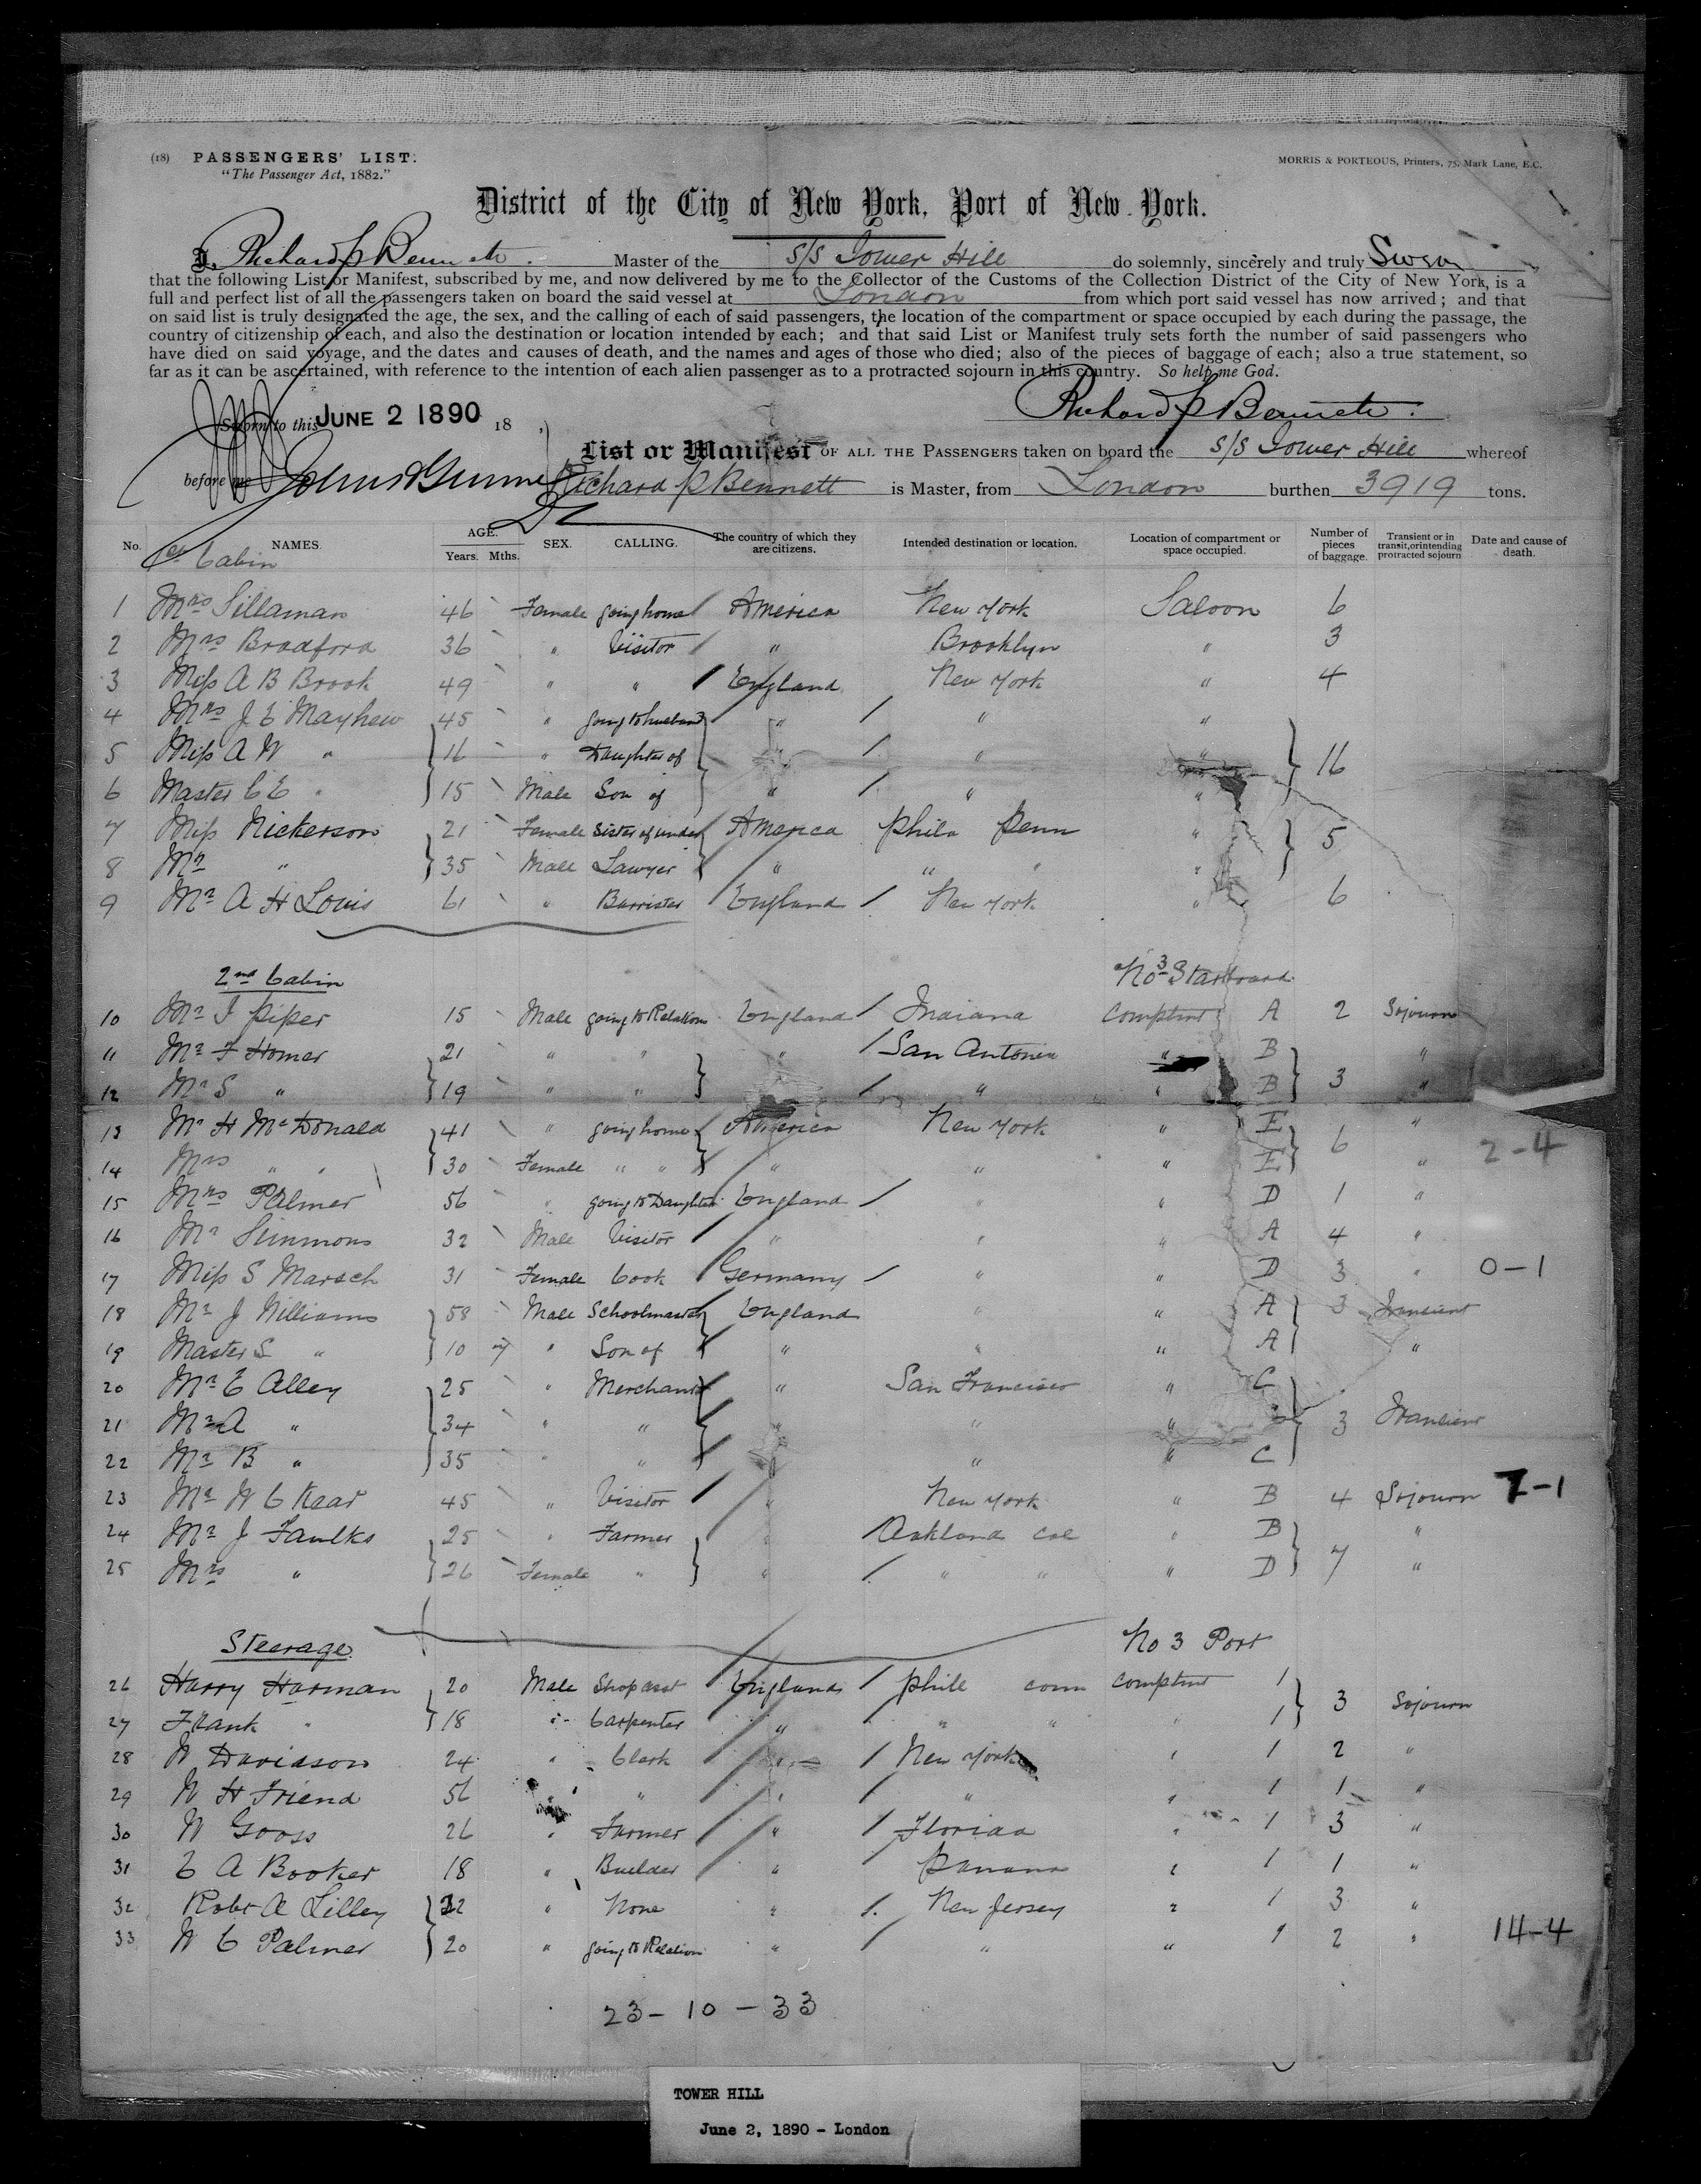 (18) PASSENGERS' LIST.
"The Passenger Act, 1882."
MORRIS & PORTEOUS, Printers, 75, Mark Lane, E.C.
District of the City of New York, Port of New York.
I, Richard P Bennett Master of the S/S Tower Hill do solemnly, sincerely and truly Swear
that the following List or Manifest, subscribed by me, and now delivered by me to the Collector of the Customs of the Collection District of the City of New York, is a
full and perfect list of all the passengers taken on board the said vessel at London from which port said vessel has now arrived; and that
on said list is truly designated the age, the sex, and the calling of each of said passengers, the location of the compartment or space occupied by each during the passage, the
country of citizenship of each, and also the destination or location intended by each; and that said List or Manifest truly sets forth the number of said passengers who
have died on said voyage, and the dates and causes of death, and the names and ages of those who died; also of the pieces of baggage of each; also a true statement, so
far as it can be ascertained, with reference to the intention of each alien passenger as to a protracted sojourn in this country. So help me God.
Richard P Bennett.
Sworn to this JUNE 2 1890 18 ,
List or Manifest OF ALL THE PASSENGERS taken on board the S/S Tower Hill whereof
before me Richard P Bennett is Master, from London burthen 3919 tons.
No. NAMES. AGE. Years. Mths. SEX. CALLING. The country of which they are citizens. Intended destination or location. Location of compartment or space occupied. Number of pieces of baggage. Transient or in transit, or intending protracted sojourn Date and cause of death.
Cabin
1 Mrs Sillaman 46 Female going home America New York Saloon 6
2 Mrs Bradford 36 " Visitor " Brooklyn " 3
3 Miss A B Brook 49 " " England New York " 4
4 Mrs J E Mayhew 45 " going to husband " " "
5 Miss A W " 16 " Daughter of " " " 16
6 Master C E " 15 Male Son of " " "
7 Miss Nickerson 21 Female Sister of under America Phila Penn " 5
8 Mr " 35 Male Lawyer " " " "
9 Mr A H Louis 61 " Barrister England New York " 6
2nd Cabin No 3 Starboard
10 Mr J Piper 15 Male going to Relations England Indiana Comptmt A 2 Sojourn
11 Mr F Homer 21 " " " San Antonia " B "
12 Mr S " 19 " " " " B 3 "
13 Mr H McDonald 41 " going home America New York " E 6 "
14 Mrs " " 30 Female " " " " " E " 2-4
15 Mrs Palmer 56 " going to Daughter England " " D 1 "
16 Mr Simmons 32 Male Visitor " " " A 4 "
17 Miss S Marsch 31 Female Cook Germany " " D 3 " 0-1
18 Mr J Williams 58 Male Schoolmaster England " " A 3 Transient
19 Master S " 10 7 " Son of " " " A "
20 Mr E Alley 25 " Merchant " San Francisco " C
21 Mr A " 34 " " " " " 3 Transient
22 Mr B " 35 " " " " C
23 Mr W C Kaar 45 " Visitor " New York " B 4 Sojourn 7-1
24 Mr J Faulks 25 " Farmer " Oakland Cal " B "
25 Mrs " 26 Female " " " " " D 7 "
Steerage No 3 Port
26 Harry Harman 20 Male Shop asst England Phill conn Comptmt 1
27 Frank " 18 " Carpenter " " " " 1 3 Sojourn
28 W Davidson 24 " Clerk " New York " 1 2 "
29 W H Friend 56 " " " " " 1 1 "
30 W Gooss 26 " Farmer " Florida " 1 3 "
31 C A Booker 18 " Builder " Panama " 1 1 "
32 Robt A Lilley 22 " None " New Jersey " 1 3 "
33 W C Palmer 20 " going to Relation " " " 1 2 " 14-4
23 - 10 - 33
TOWER HILL
June 2, 1890 - London